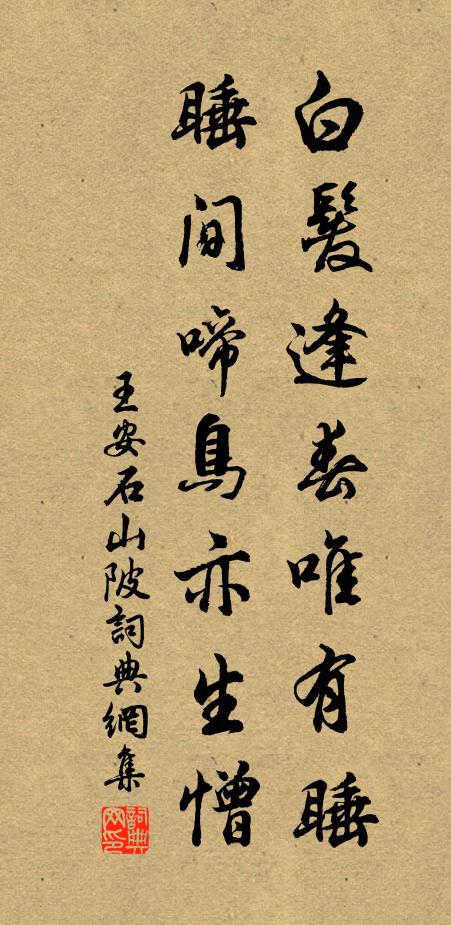 白髮逢春唯有睡
睡間啼鳥亦生憎
王安石山陂詞典網集
詞典網印